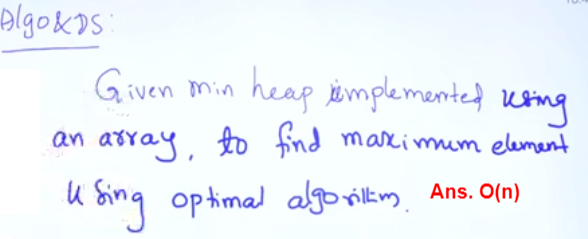 Algo & DS:
Given min heap implemented using
an array, to find maximum element
using optimal algorithm. Ans. O(n)